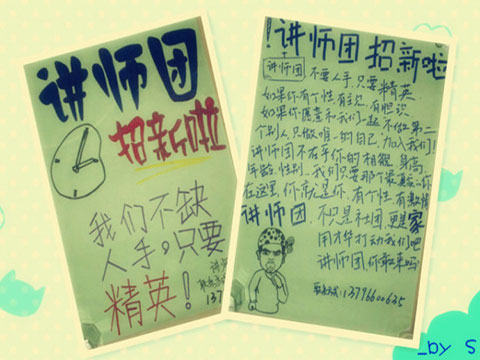 讲师团
招新啦
我们不缺
人手,只要
精英!
讲
137
!讲师团招新啦
讲师团 不要人手,只要精英
如果你有个性,有主见,有胆识
如果你愿意和我们一起不做第二
个别人,只做唯一的自己,加入我们!
讲师团不在乎你的相貌,身高
年龄,性别,我们只要那个最真的你
在这里,你就是你,有个性,有激情
讲师团,不只是社团,更是家
用才华打动我们吧
讲师团你敢来吗
联系方式:13796600635
_by S